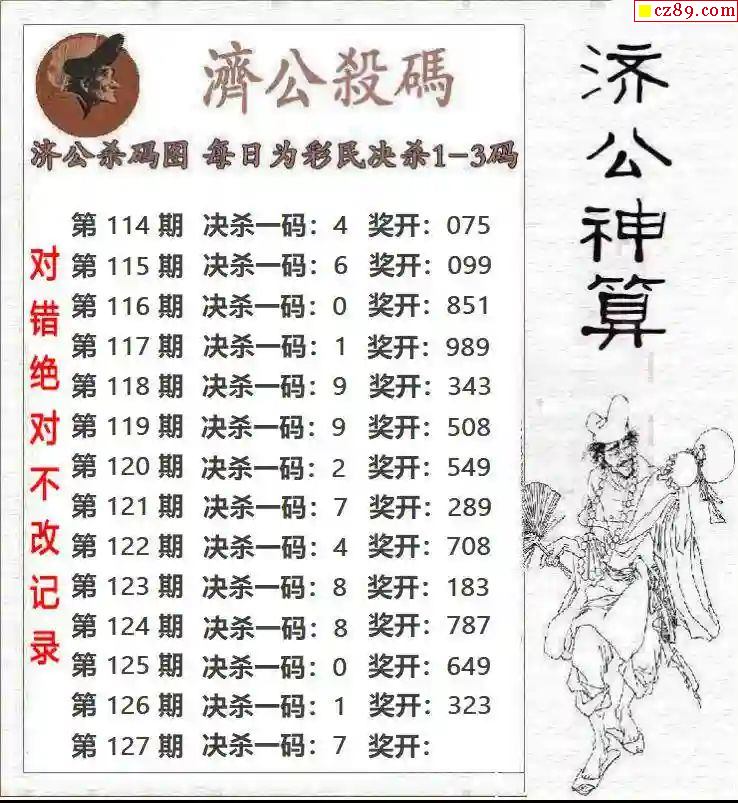 cz89.com
濟公殺碼
济公杀码图 每日为彩民决杀1-3码
第 114 期 决杀一码：4 奖开：075
第 115 期 决杀一码：6 奖开：099
第 116 期 决杀一码：0 奖开：851
第 117 期 决杀一码：1 奖开：989
第 118 期 决杀一码：9 奖开：343
第 119 期 决杀一码：9 奖开：508
第 120 期 决杀一码：2 奖开：549
第 121 期 决杀一码：7 奖开：289
第 122 期 决杀一码：4 奖开：708
第 123 期 决杀一码：8 奖开：183
第 124 期 决杀一码：8 奖开：787
第 125 期 决杀一码：0 奖开：649
第 126 期 决杀一码：1 奖开：323
第 127 期 决杀一码：7 奖开：
对错绝对不改记录
济公神算